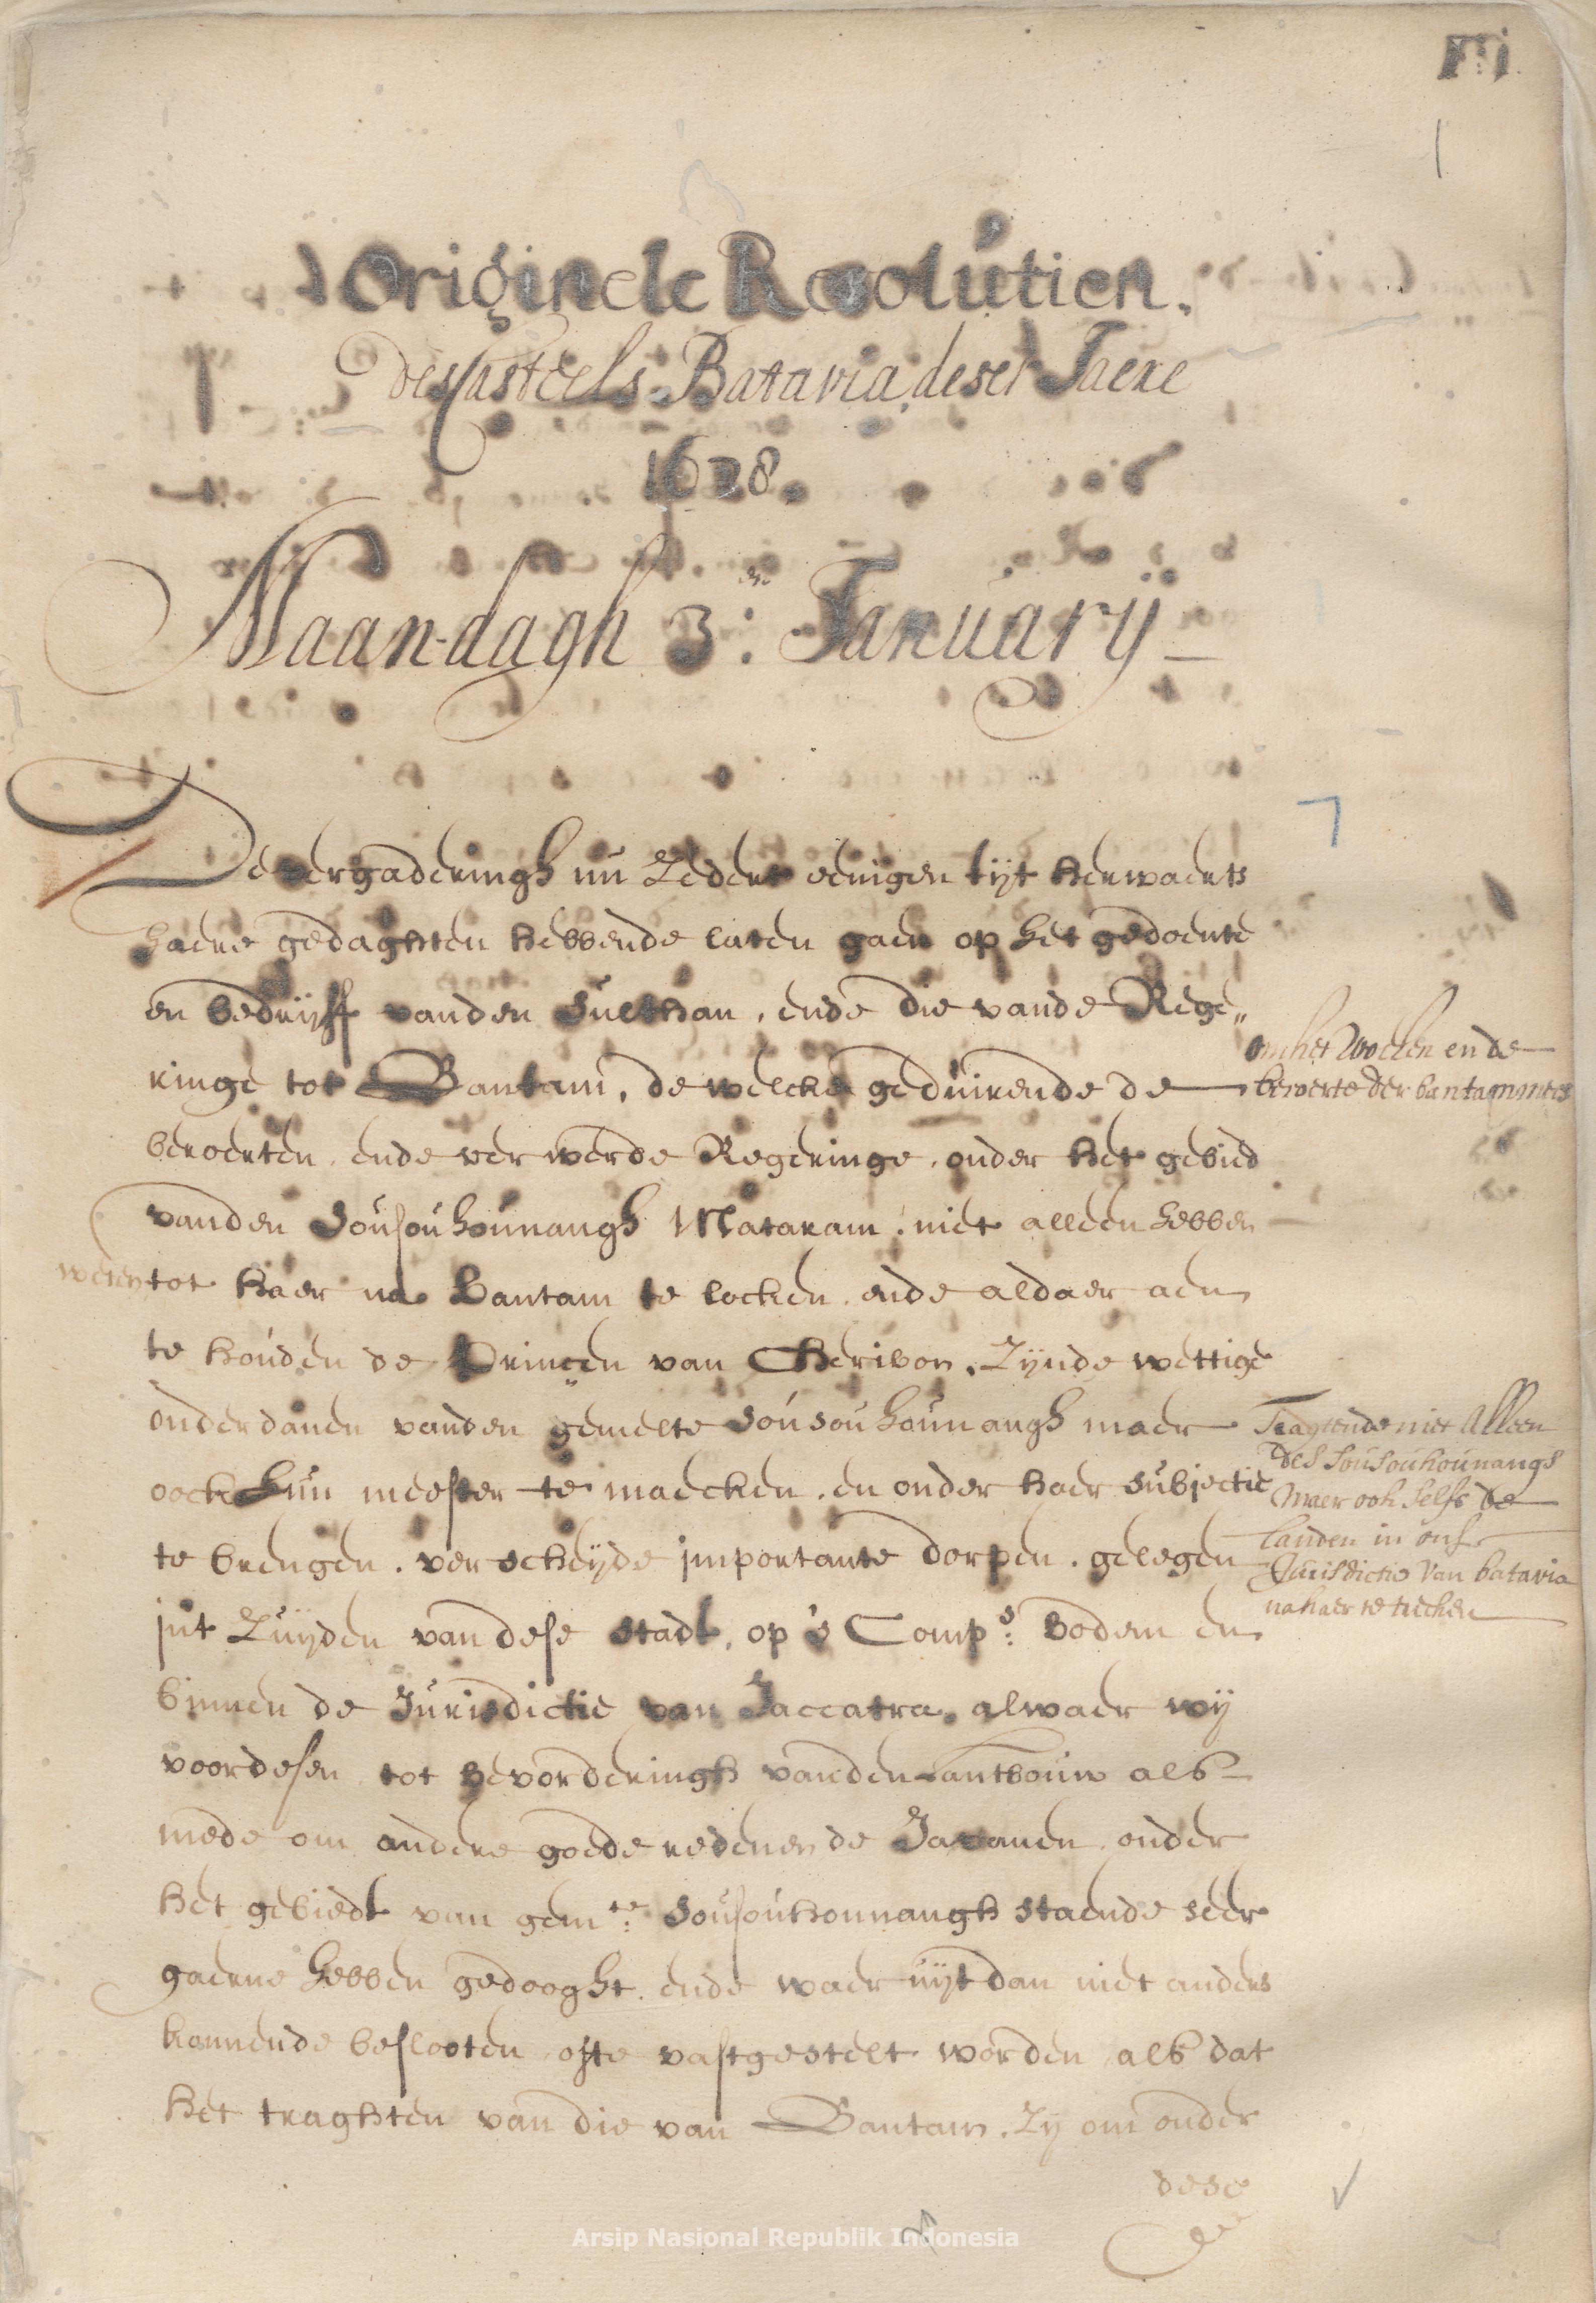 d'Originele Resolútien.
des Casteels Batavia, deser Jaere
1678.
Maan-dagh 3:en Januarij
De vergaderingh nu Zedert eenigen tijt herwaerts
haere gedaghten hebbende laten gaen op het gedoente
en bedrijff vanden Sulthan, ende die vande Rege„
ringe tot Bantam, de welcke geduirende de
beroerten, ende verwerde Regeringe, onder het gebied
vanden Sousouhounangh Mataram, niet alleen hebben
weten tot haer na Bantam te locken, ende aldaer aen
te houden de Princen van Cheribon, Zijnde wettige
onderdanen vanden gemelte Sousouhounangh maer
oock hun meester te maecken, en onder haer subjectie
te brengen, verscheijde importante dorpen, gelegen
int Zuijden van dese stadt, op 's Comps: bodem en
binnen de Jurisdictie van Jaccatra, alwaer wij
voordesen tot bevorderingh vanden Lantbouw als
mede om andere goede redenen de Javanen onder
het gebiedt van gemte: Sousouhounangh staende seer
gaerne hebben gedooght, ende waer uijt dan niet anders
konnende beslooten ofte vastgestelt worden, als dat
het traghten van die van Bantam, Zij om onder
dese
om het woelen ende
beroerte der bantammers
Tragtende niet alleen
des Sousouhounangs
maer ook selfs de
landen in onse
Jurisdictie van batavia
na haer te trecken
Arsip Nasional Republik Indonesia